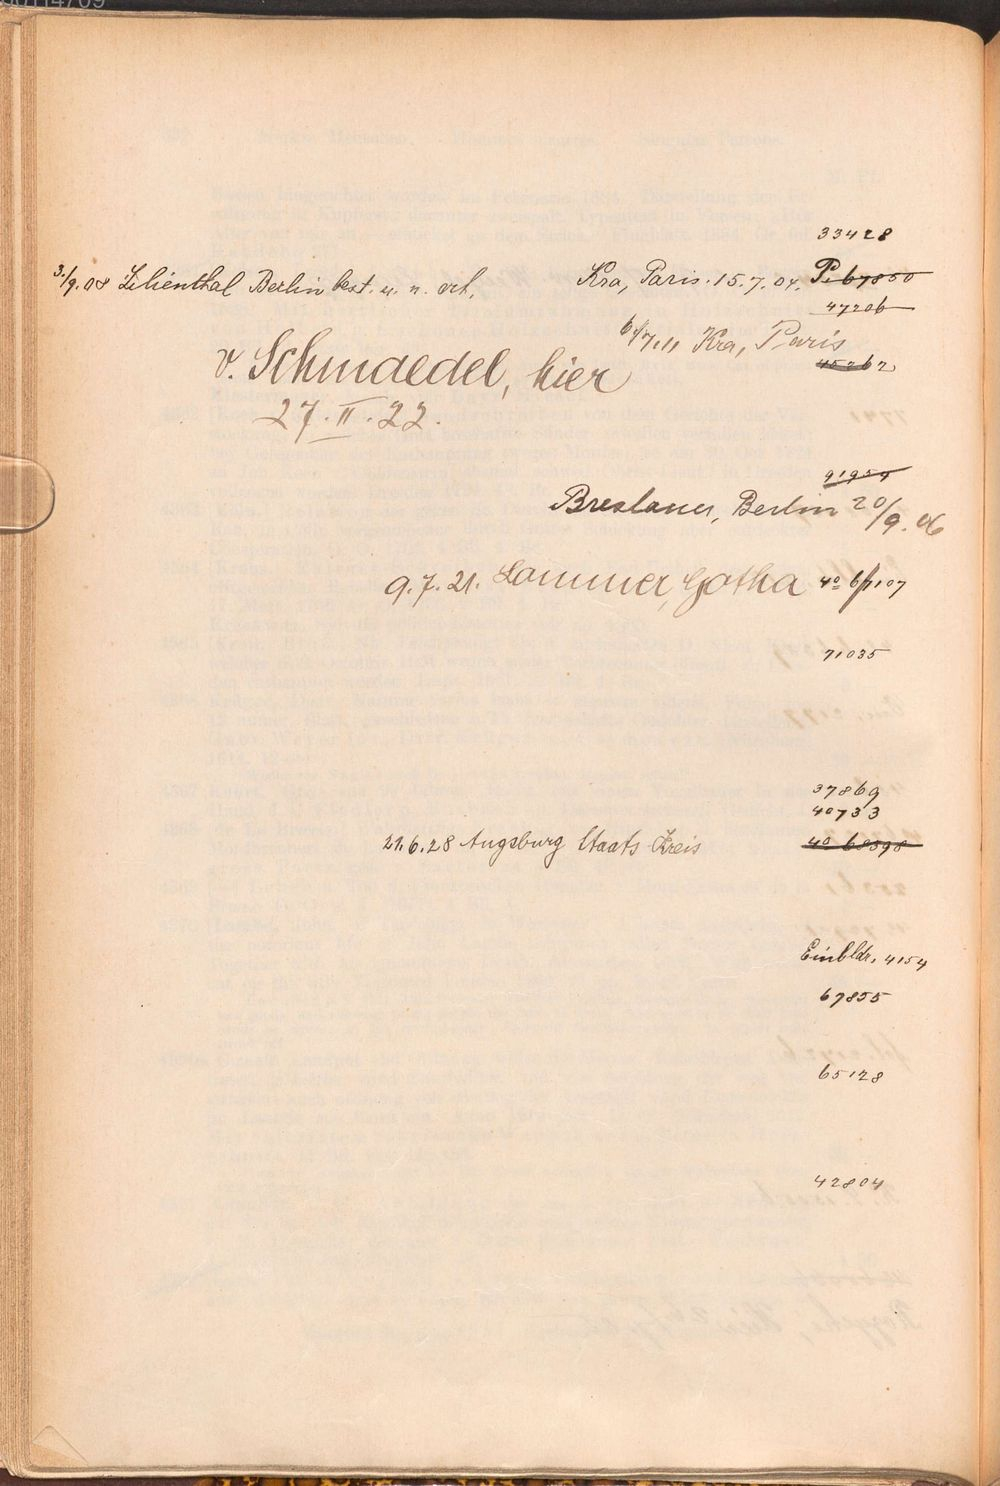 33428
3./9.08 Lilienthal Berlin best. u. n. erh. Kra, Paris. 15.7.04. P. 67850
47206
6/7.11 Kra, Paris
v. Schmaedel, hier
45262
27.II.22.
91954
Breslauer, Berlin 20/9.06
9.7.21. Lommer, Gotha 4º 6/7107
71035
37869
40733
21.6.28 Augsburg Staats Kreis 4º 68598
Einbldr. 4154
67855
65128
42804